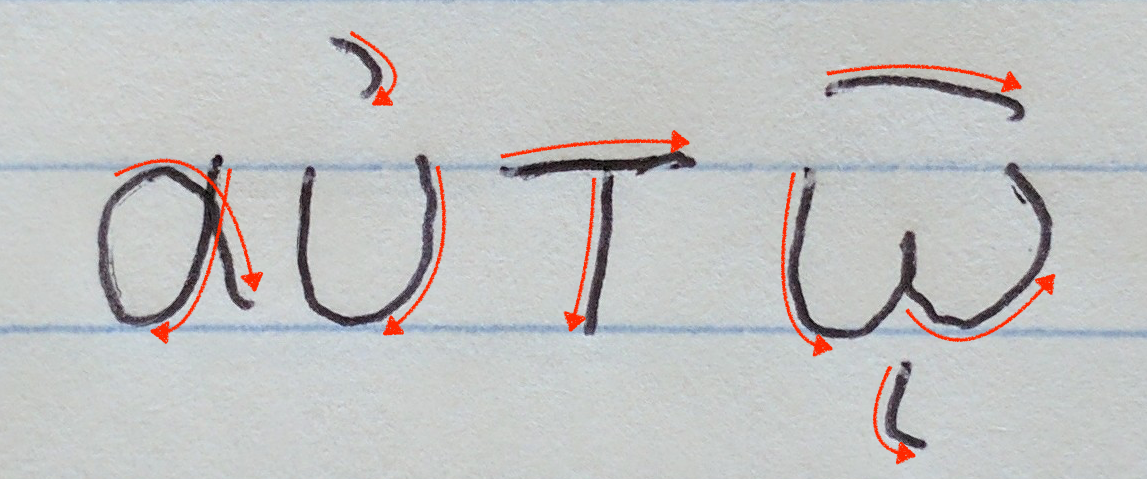 αὐτῷ